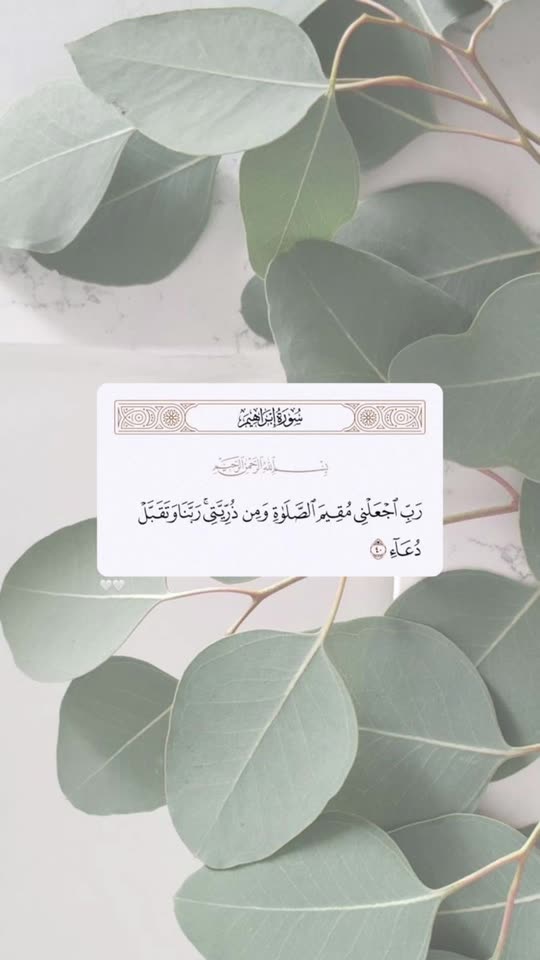 سُورَةُ إِبْرَاهِيمَ
بِسْمِ ٱللَّهِ ٱلرَّحْمَٰنِ ٱلرَّحِيمِ
رَبِّ ٱجْعَلْنِى مُقِيمَ ٱلصَّلَوٰةِ وَمِن ذُرِّيَّتِى ۚ رَبَّنَا وَتَقَبَّلْ
دُعَآءِ ٤٠